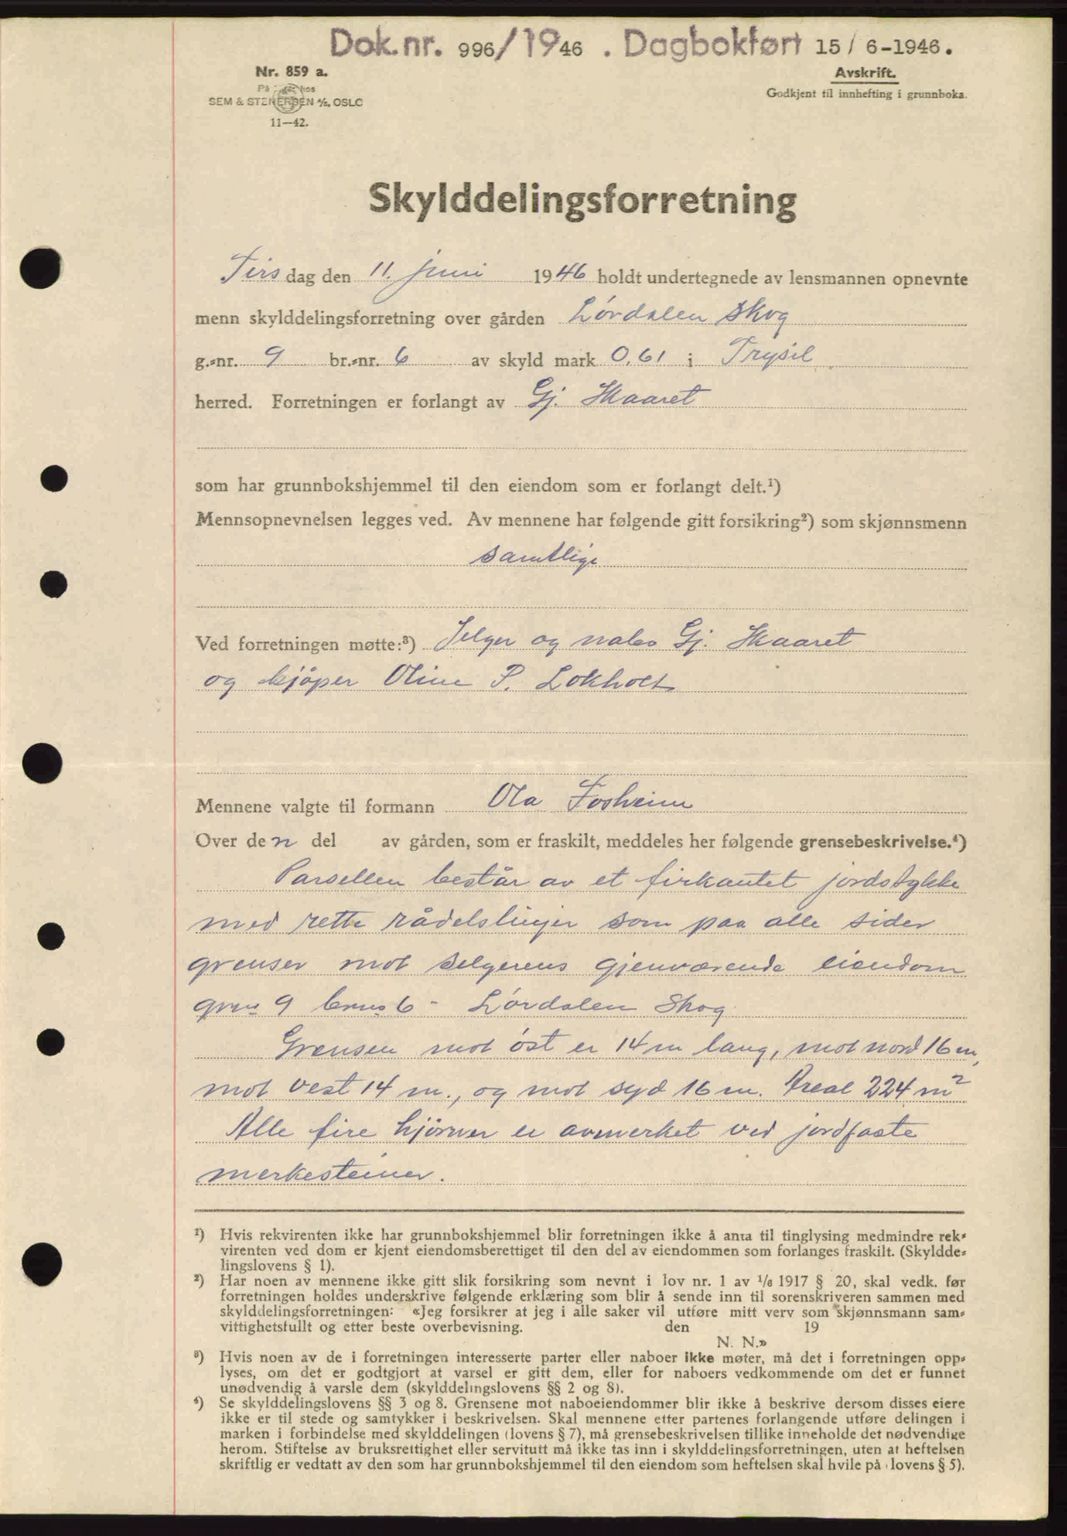 Dok.nr. 996/1946 . Dagbokført 15/6-1946.
Nr. 859 a.
SEM & STENERSEN A/S, OSLO
11—42.
Avskrift.
Godkjent til innhefting i grunnboka.
Skylddelingsforretning
Tirsdag den 11. juni 1946 holdt undertegnede av lensmannen opnevnte
menn skylddelingsforretning over gården Lördalen Skog
g.-nr. 9 br.-nr. 6 av skyld mark 0,61 i Trysil
herred. Forretningen er forlangt av Gj. Skaaret
som har grunnbokshjemmel til den eiendom som er forlangt delt.¹)
Mennsopnevnelsen legges ved. Av mennene har følgende gitt forsikring²) som skjønnsmenn
samtlige
Ved forretningen møtte:³) Selger og nabo Gj. Skaaret
og kjöper Oline P. Lokholt
Mennene valgte til formann Ola Fosheim
Over den del av gården, som er fraskilt, meddeles her følgende grensebeskrivelse.⁴)
Parsellen består av et firkantet jordstykke
med rette rådelslinjer som paa alle sider
grenser mot selgerens gjenværende eiendom
gnr. 9 brn. 6 - Lördalen Skog
Grensen mot öst er 14 m lang, mot nord 16 m,
mot vest 14 m., og mot syd 16 m. Areal 224 m²
Alle fire hjörner er avmerket ved jordfaste
merkesteiner.
¹) Hvis rekvirenten ikke har grunnbokshjemmel blir forretningen ikke å anta til tinglysing medmindre rek-
virenten ved dom er kjent eiendomsberettiget til den del av eiendommen som forlanges fraskilt. (Skyldde-
lingslovens § 1).
²) Har noen av mennene ikke gitt slik forsikring som nevnt i lov nr. 1 av 1/6 1917 § 20, skal vedk. før
forretningen holdes underskrive følgende erklæring som blir å sende inn til sorenskriveren sammen med
skylddelingsforretningen: «Jeg forsikrer at jeg i alle saker vil utføre mitt verv som skjønnsmann sam-
vittighetsfullt og etter beste overbevisning. den 19
N. N.»
³) Hvis noen av de i forretningen interesserte parter eller naboer ikke møter, må det i forretningen opp-
lyses, om det er godtgjort at varsel er gitt dem, eller for naboers vedkommende om det er funnet
unødvendig å varsle dem (skylddelingslovens §§ 2 og 8).
⁴) Se skylddelingslovens §§ 3 og 8. Grensene mot naboeiendommer blir ikke å beskrive dersom disses eiere
ikke er til stede og samtykker i beskrivelsen. Skal mennene etter partenes forlangende utføre delingen i
marken i forbindelse med skylddelingen (lovens § 7), må grensebeskrivelsen tillike inneholde det nødvendige
herom. Stiftelse av bruksrettighet eller servitutt må ikke tas inn i skylddelingsforretningen, uten at heftelsen
skriftlig er vedtatt av den som har grunnbokshjemmel til den eiendom som heftelsen skal hvile på (lovens § 5).